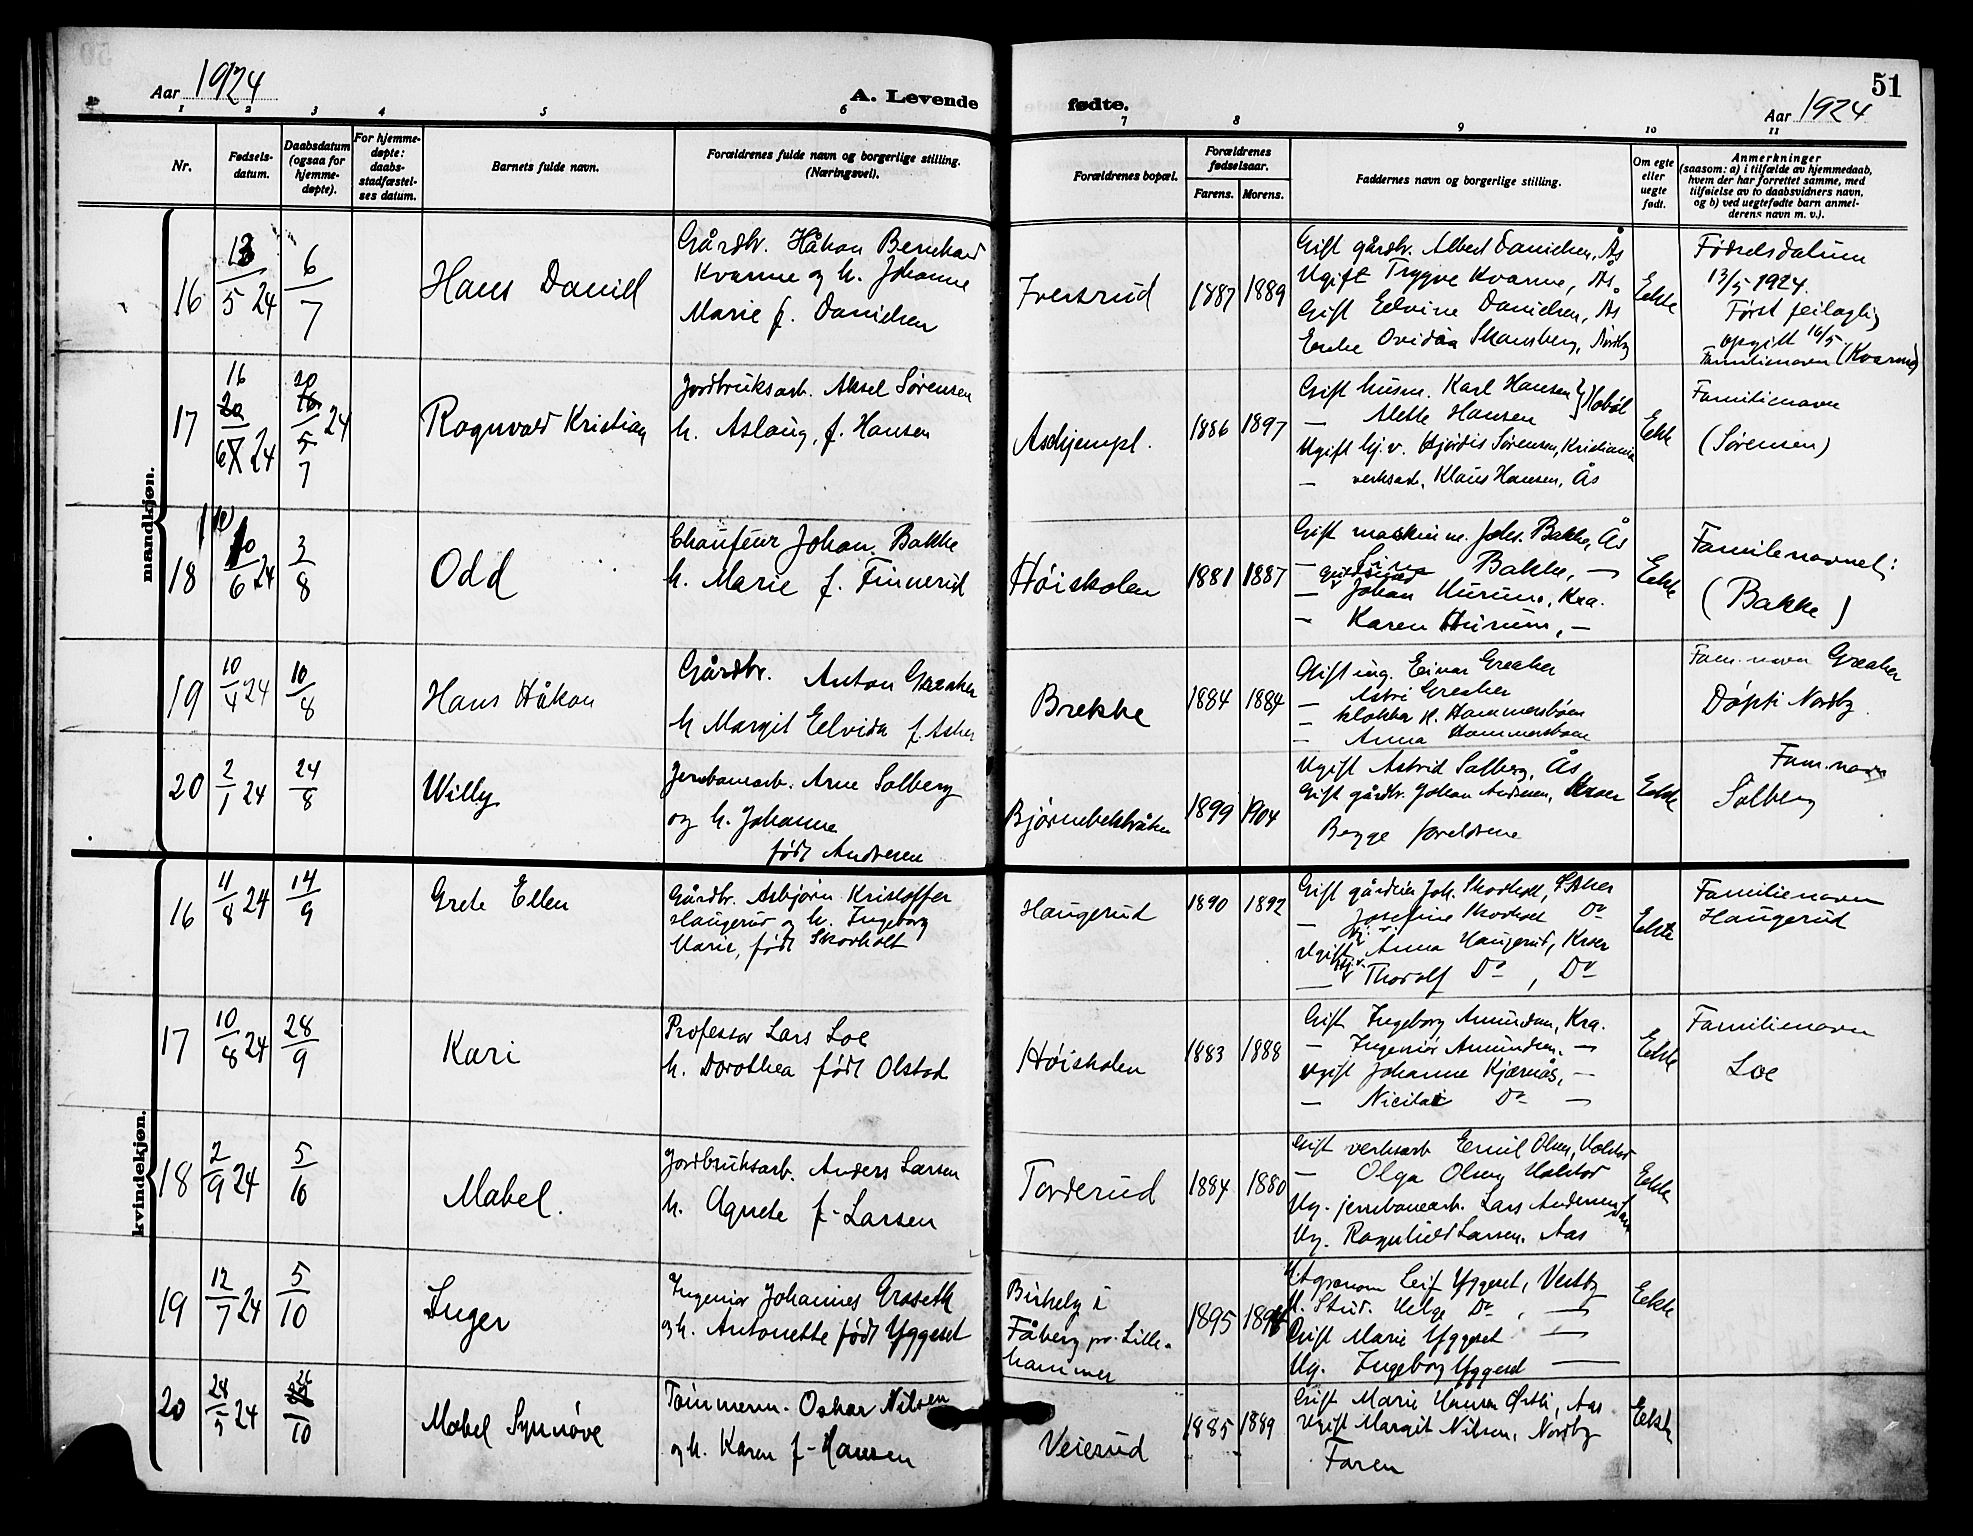 Aar 1924
A. Levende
fødte.
51
Aar 1924
1 2 3 4 5 6 7 8 9 10 11
Nr.
Fødsels-
datum.
Daabsdatum
(ogsaa for
hjemme-
døpte).
For hjemme-
døpte:
daabs-
stadfæstel-
ses datum.
Barnets fulde navn.
Forældrenes fulde navn og borgerlige stilling.
(Næringsvei).
Forældrenes bopæl.
Forældrenes
fødselsaar.
Farens. Morens.
Faddernes navn og borgerlige stilling.
Om egte
eller
uegte
født.
Anmerkninger
(saasom: a) i tilfælde av hjemmedaab,
hvem der har forrettet samme, med
tilføielse av to daabsvidners navn,
og b) ved uegtefødte barn anmel-
derens navn m. v.).
mandkjøn.
16
13/5 24
6/7
Hans Daniel
Gårdbr. Håkon Bernhard
Kvarme og h. Johanne
Marie f. Danielsen
Iversrud
1887 1889
Gift gårdbr. Albert Danielsen, Ås
Ugift Trygve Kvarme, Ås.
Gift Edvine Danielsen, Ås
Enke Ovidia Skansberg, Nordby
Ekte
Fødselsdatum
13/5 1924.
Først feilaglig
opgitt 16/5
Familienavn (Kvarme)
17
16
20
6 7 24
20
16
5 24
7
Ragnvald Kristian
Jordbruksarb. Aksel Sørensen
h. Aslaug, f. Hansen
Askjempl.
1886 1897
Gift husm. Karl Hansen } Hobøl
— Alette Hansen
Ugift hj.v. Hjørdis Sørensen, Kristiania
— verksarb. Klaus Hansen, Ås
Ekte
Familienavn
(Sørensen)
18
10/6 24
3/8
Odd
Chauffeur Johan Bakke
h. Marie f. Finnerud
Høiskolen
1881 1887
Gift maskinm. Johs. Bakke, Ås
— Lina Bakke, —
— Johan Hurum, Kra.
— Karen Hurum, —
Ekte
Familienavnet:
(Bakke)
19
10/4 24
10/8
Hans Håkon
Gårdbr. Anton Greaker
h Margit Elvida f. Asker
Brekke
1884 1884
Gift ing. Einar Greaker
— Astri Greaker
— klokker H. Hammersbøen
— Anna Hammersbøen
Fam.navn Greaker
Døpt i Nordby.
20
2/1 24
24/8
Willy
Jernbanearb. Arne Solberg
og h. Johanne
født Andresen
Bjørnebekbråten
1899 1904
Ugift Astrid Solberg, Ås
Gift gårdbr. Johan Andresen, Kroer
Begge foreldrene
Ekte
Fam.navn
Solberg
kvindekjøn.
16
11/8 24
14/9
Grete Ellen
Gårdbr. Asbjørn Kristoffer
Haugerud og h. Ingeborg
Marie, født Skovholt
Haugerud
1890 1892
Gift gårdeier Joh. Skovholt, Ø. Aker
— Josefine Skovholt Do
Ugift hj.v. Anna Haugerud, Kroer
— Thorolf Do, Do
Ekte
Familienavn
Haugerud
17
10/8 24
28/9
Kari
Professor Lars Loe
h. Dorothea født Olstad
Høiskolen
1883 1888
Gift Ingeborg Amundsen, Kra.
— Ingeniør Amundsen. —
Ugift Johanne Kjærnås, —
— Nicilai Do —
Ekte
Familienavn
Loe
18
2/9 24
5/10
Mabel.
Jordbruksarb. Anders Larsen
h. Agnete f. Larsen
Torderud
1884 1880
Gift verksarb Emil Olsen, Holstad
— Olga Olsen Holstad
Ug. jernbanearb. Lars Andersen
Ug. Ragnhild Larsen. Aas
Ekte
19
12/7 24
5/10
Inger
Ingeniør Johannes Grøseth
og h. Antonette født Yggeset
Birkely i
Fåberg pr. Lille-
hammer
1895
Leif Yggeset, Vestby
U. Stud. Helge Do, —
Gift Marie Yggeset —
Ug. Ingeborg Yggeset —
Ekte
20
24/5 24
26/10
Mabel Synnøve
Tømmerm. Oskar Nilsen
og h. Karen f. Hansen
Veierud
1885 1889
Gift Marie Hansen Østli, Aas
Ugift Margit Nilsen, Nordby
Faren
Ekte